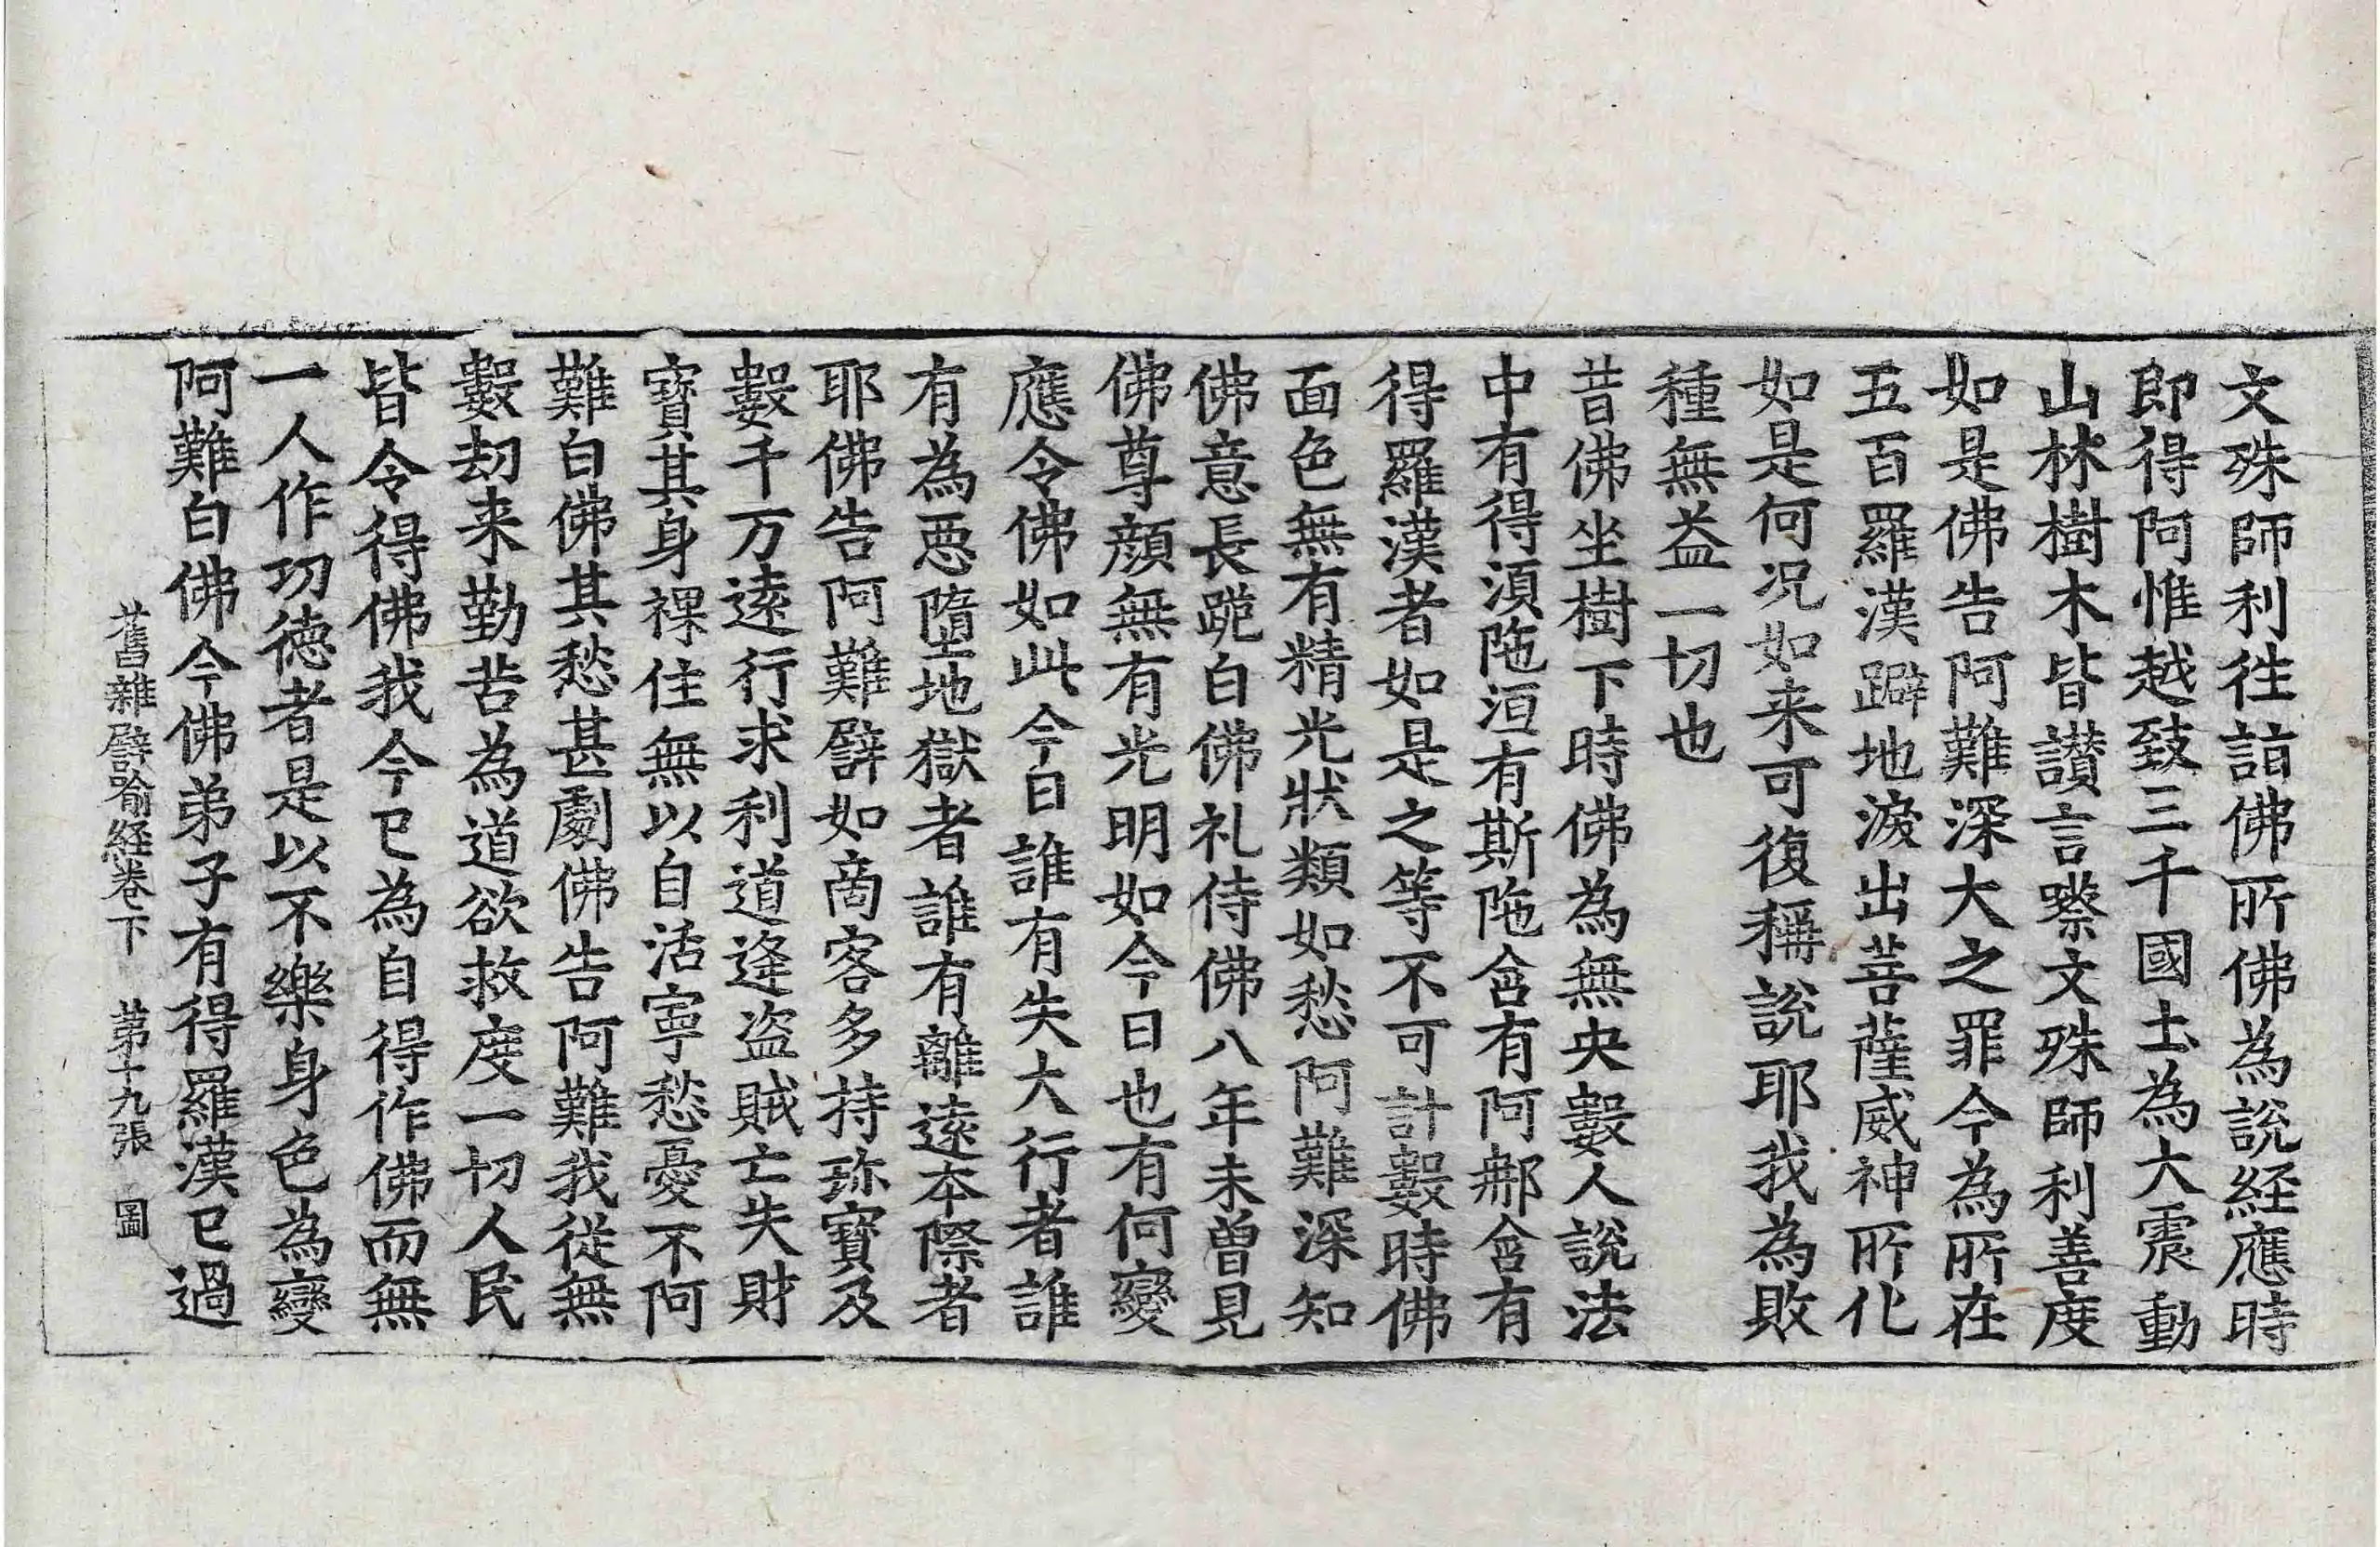 文殊師利徃詣佛所佛為說経應時
即得阿惟越致三千國土為大震動
山林樹木皆讃言㘑文殊師利善度
如是佛告阿難深大之罪今為所在
五百羅漢躃地淚出菩薩威神所化
如是何况如来可復稱說耶我為敗
種無益一切也
昔佛坐樹下時佛為無央數人說法
中有得湏陁洹有斯陁含有阿那含有
得羅漢者如是之等不可計數時佛
面色無有精光狀類如愁阿難深知
佛意長跪白佛礼侍佛八年未曽見
佛尊顔無有光明如今日也有何變
應令佛如此今日誰有失大行者誰
有為惡墮地獄者誰有離逺本際者
耶佛告阿難譬如啇客多持珎寶及
數千万逺行求利道逢盗賊亡失財
寶其身裸住無以自活寜愁憂不阿
難白佛其愁甚劇佛告阿難我從無
數劫来勤苦為道欲救度一切人民
皆令得佛我今已為自得作佛而無
一人作功德者是以不樂身色為變
阿難白佛今佛弟子有得羅漢已過
舊雜譬喻経卷下　第十九張　圖